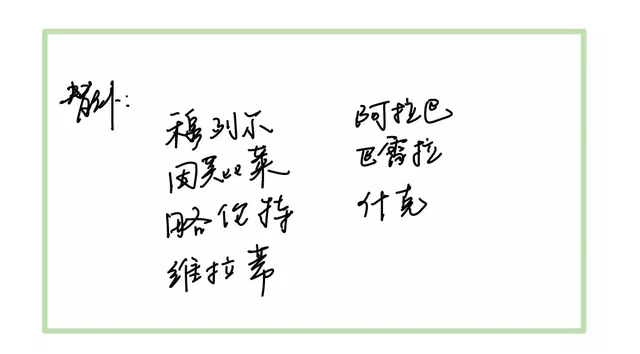 替补:
穆列尔
因莫比莱
略伦特
维拉蒂
阿拉巴
巴雷拉
什克